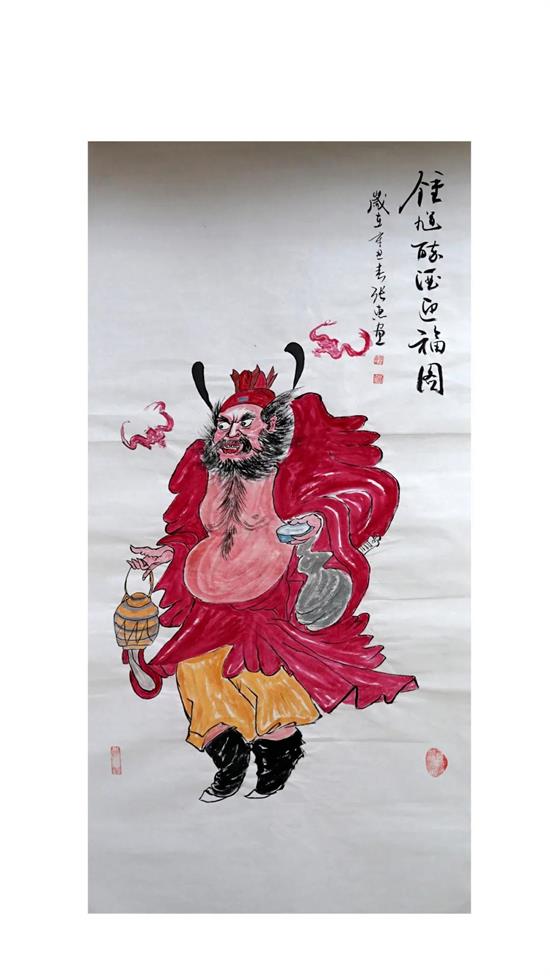 锺馗醉酒迎福图
歲在辛丑春张画